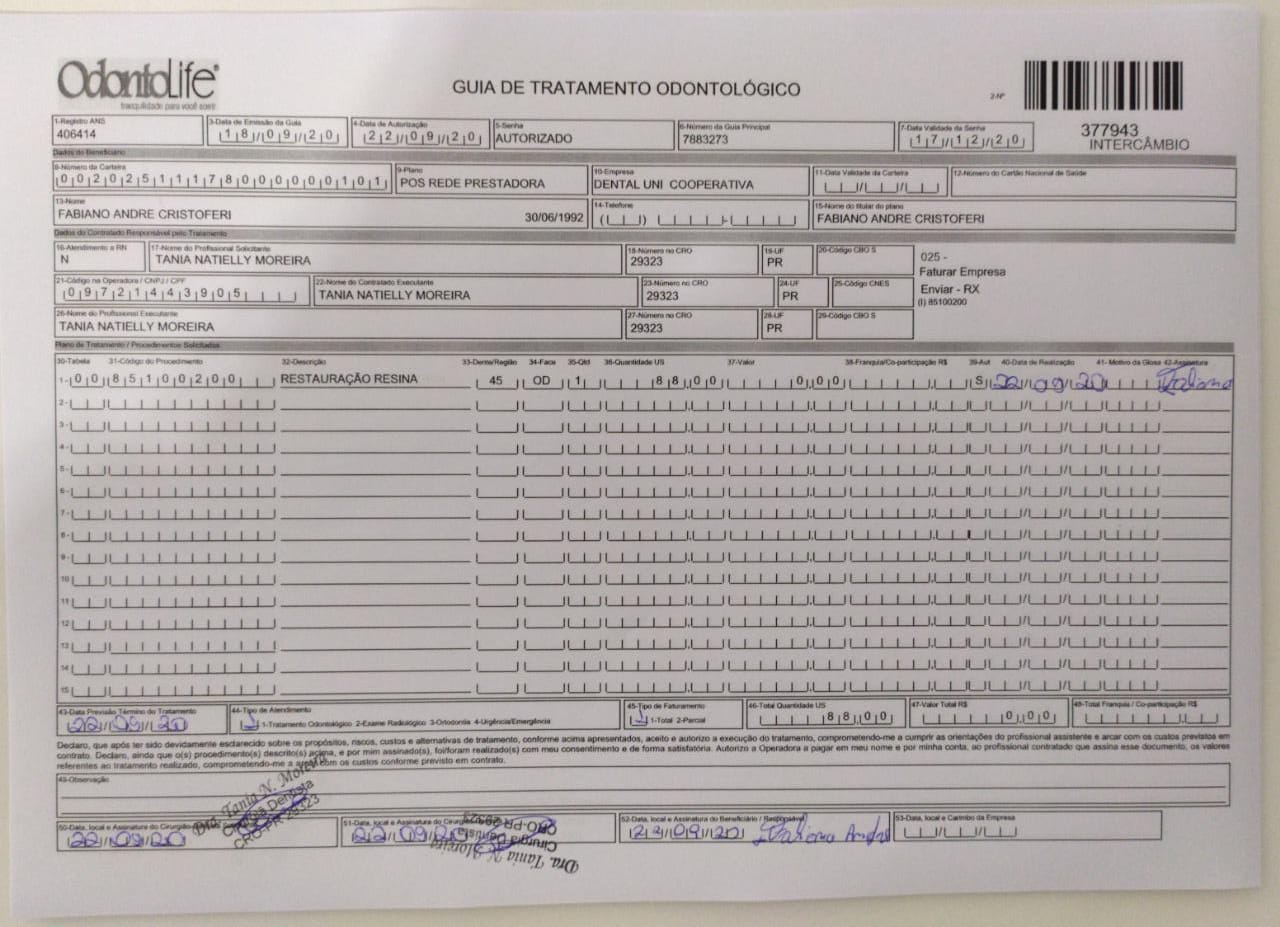 OdontoLife
tranquilidade para você sorrir
GUIA DE TRATAMENTO ODONTOLÓGICO
2-Nº
377943
INTERCÂMBIO
1-Registro ANS
406414
3-Data de Emissão da Guia
18/09/20
4-Data de Autorização
22/09/20
5-Senha
AUTORIZADO
6-Número da Guia Principal
7883273
7-Data Validade da Senha
17/12/20
Dados do Beneficiário
8-Número da Carteira
00202511178000000101
9-Plano
POS REDE PRESTADORA
10-Empresa
DENTAL UNI COOPERATIVA
11-Data Validade da Carteira
12-Número do Cartão Nacional de Saúde
13-Nome
FABIANO ANDRE CRISTOFERI 30/06/1992
14-Telefone
15-Nome do titular do plano
FABIANO ANDRE CRISTOFERI
Dados do Contratado Responsável pelo Tratamento
16-Atendimento a RN
N
17-Nome do Profissional Solicitante
TANIA NATIELLY MOREIRA
18-Número no CRO
29323
19-UF
PR
20-Código CBO S
025 -
Faturar Empresa
Enviar - RX
(I) 85100200
21-Código na Operadora / CNPJ / CPF
09721443905
22-Nome do Contratado Executante
TANIA NATIELLY MOREIRA
23-Número no CRO
29323
24-UF
PR
25-Código CNES
26-Nome do Profissional Executante
TANIA NATIELLY MOREIRA
27-Número no CRO
29323
28-UF
PR
29-Código CBO S
Plano de Tratamento / Procedimentos Solicitados
30-Tabela 31-Código do Procedimento 32-Descrição 33-Dente/Região 34-Face 35-Qtd 36-Quantidade US 37-Valor 38-Franquia/Co-participação R$ 39-Aut 40-Data de Realização 41- Motivo da Glosa 42-Assinatura
1- 00 85100200 RESTAURAÇÃO RESINA 45 OD 1 88,00 0,00 S 22/09/20 Fabiano
2-
3-
4-
5-
6-
7-
8-
9-
10-
11-
12-
13-
14-
15-
43-Data Previsão Término do Tratamento
22/09/20
44-Tipo de Atendimento
1 1-Tratamento Odontológico 2-Exame Radiológico 3-Ortodontia 4-Urgência/Emergência
45-Tipo de Faturamento
1 1-Total 2-Parcial
46-Total Quantidade US
88,00
47-Valor Total R$
0,00
48-Total Franquia / Co-participação R$
Declaro, que após ter sido devidamente esclarecido sobre os propósitos, riscos, custos e alternativas de tratamento, conforme acima apresentados, aceito e autorizo a execução do tratamento, comprometendo-me a cumprir as orientações do profissional assistente e arcar com os custos previstos em
contrato. Declaro, ainda que o(s) procedimento(s) descrito(s) acima, e por mim assinado(s), foi/foram realizado(s) com meu consentimento e de forma satisfatória. Autorizo a Operadora a pagar em meu nome e por minha conta, ao profissional contratado que assina esse documento, os valores
referentes ao tratamento realizado, comprometendo-me a arcar com os custos conforme previsto em contrato.
49-Observação
Dra. Tania N. Moreira
Cirurgiã Dentista
CRO-PR 29323
50-Data, local e Assinatura do Cirurgião
22/09/20
51-Data, local e Assinatura do Cirurgião
22/09/20
Dra. Tania N. Moreira
Cirurgiã Dentista
CRO-PR 29323
52-Data, local e Assinatura do Beneficiário / Responsável
22/09/20 Fabiano André
53-Data, local e Carimbo da Empresa